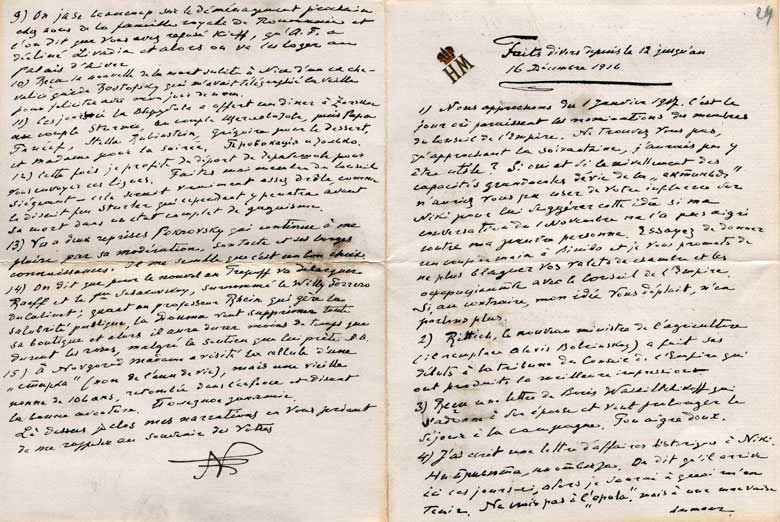 24
HM
Faits divers depuis le 12 jusqu'au
16 Décembre 1916
1) Nous approchons du 1 Janvier 1917. c'est le
jour où paraissent les nominations des membres
du Conseil de l'Empire. Ne trouvez Vous pas,
qu'approchant la soixantaine, j'aurais pu y
être utile? Si oui et si le nivellement des
capacités granducales dérive de la
n'auriez vous pu user de Votre influence sur
Niki pour lui suggérer cette idée si ma
conversation du 1 Novembre ne l'a pas aigri
contre ma personne. Essayez de donner
un coup de main à Bimbo et je Vous promets de
ne plus blaguer Vos valets de chambre et les
avec le Conseil de l'Empire.
Si, au contraire, mon idée Vous déplait, n'en
parlons plus.
2) Rittich, le nouveau ministre de l'agriculture
(il remplace Alexis Bobrinsky) a fait ses
débuts à la tribune du Conseil de l'Empire qui
ont produit la meilleure impression
3) Reçu une lettre de Boris Wassiltchikoff qui
s'adonne à son épouse et veut prolonger le
séjour à la campagne. Ton aigre doux.
4) J'ai écrit une lettre d'affaires historiques à Niki.
On dit qu'il arrive
ici ces jours-ci, alors je saurai à quoi m'en
tenir. Ne vais pas à l'"opéra", mais à une mauvaise
humeur.
9) On jase beaucoup sur le déménagement prochain
chez nous de la famille royale de Roumanie et
l'on dit que Vous avez refusé Kieff, qu'A. F. a
décliné Livadia et alors on va les loger au
Palais d'hiver
10) Reçu la nouvelle de la mort subite à Nice d'un ex che-
valier garde qui m'avait télégraphié la veille
pour féliciter avec mon jour de nom.
11) Ces jours-ci la a offert un dîner à
au couple puis Papa
Stella Rubinstein, Grégoire pour le dessert,
et madame pour la soirée.
12) Cette fois je profite du départ de pour
Vous envoyer ces lignes. Faites moi membre du Conseil
siégeant – cela serait vraiment assez drôle, comme
le disait feu qui cependant y pénétra avant
sa mort dans un état complet de gagaïsme.
13) Vu à deux reprises Pokrovsky qui continue à me
plaire par sa modération, son tacte et ses larges
connaissances. Il me semble que c'est un bon choix
14) On dit que pour le nouvel an Trepoff va débarquer
Raeff et le surnommé le Willy Ferrero
du Cabinet; quant au professeur Rhein qui gère la
salubrité publique, la Douma veut supprimer toute
sa boutique et alors il aura duré moins de temps que
durent les roses, malgré le soutien que lui prête A. F.
15) À Novgorod madame a visité la cellule d'une
(non de l'eau de vie), mais une vieille
nonne de 10 ans, retombée dans l'enfance et disant
la bonne aventure.
Là dessus je clos mes narrations en Vous priant
de me rappeler au souvenir des Vôtres